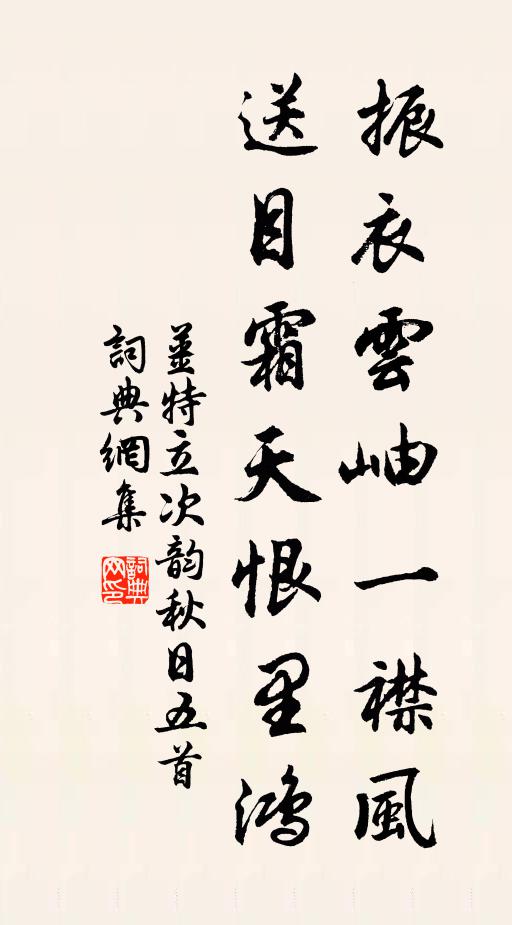 振衣雲岫一襟風
送目霜天恨里鴻
姜特立次韵秋日五首
詞典網集
詞典网印